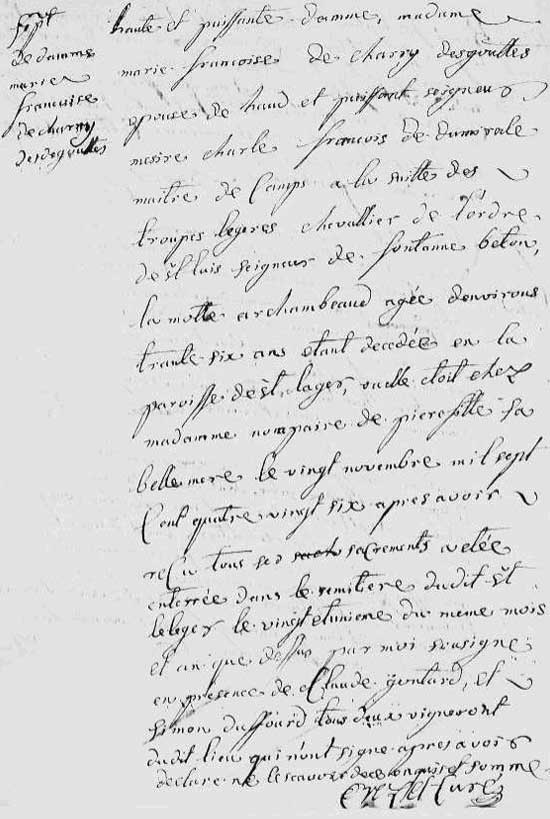 Sept
de damme
marie
francoise
de charry
desdegouttes
haute et puissante damme, madame
marie francoise de charry desgouttes
epouse de haud et puissant seigneur
mesire charle francois de damirale
maitre de Camps a la suitte des
troupes legeres chevallier de lordre
de st luis seigneur de fontanne beton,
la motte archambeaud agée denvirons
trante six ans etant decedée en la
paroisse de st. lager, ou elle etoit chez
madamme nompaire de pierefitte sa
belle mere le vingt novembre mil sept
Cent quatre vingt six apres avoir
recu tous ses sacrements a etée
enterrée dans le semitiere dudit st
leleger le vingt et unieme du même mois
et an que dessus par moi sousigne
en presence de Claude gontard, et
simon duffourd tous deux vigneront
dudit lieu qui n'ont signe apres avoir
declare ne le scavoir de ce enquis et somme
Curé